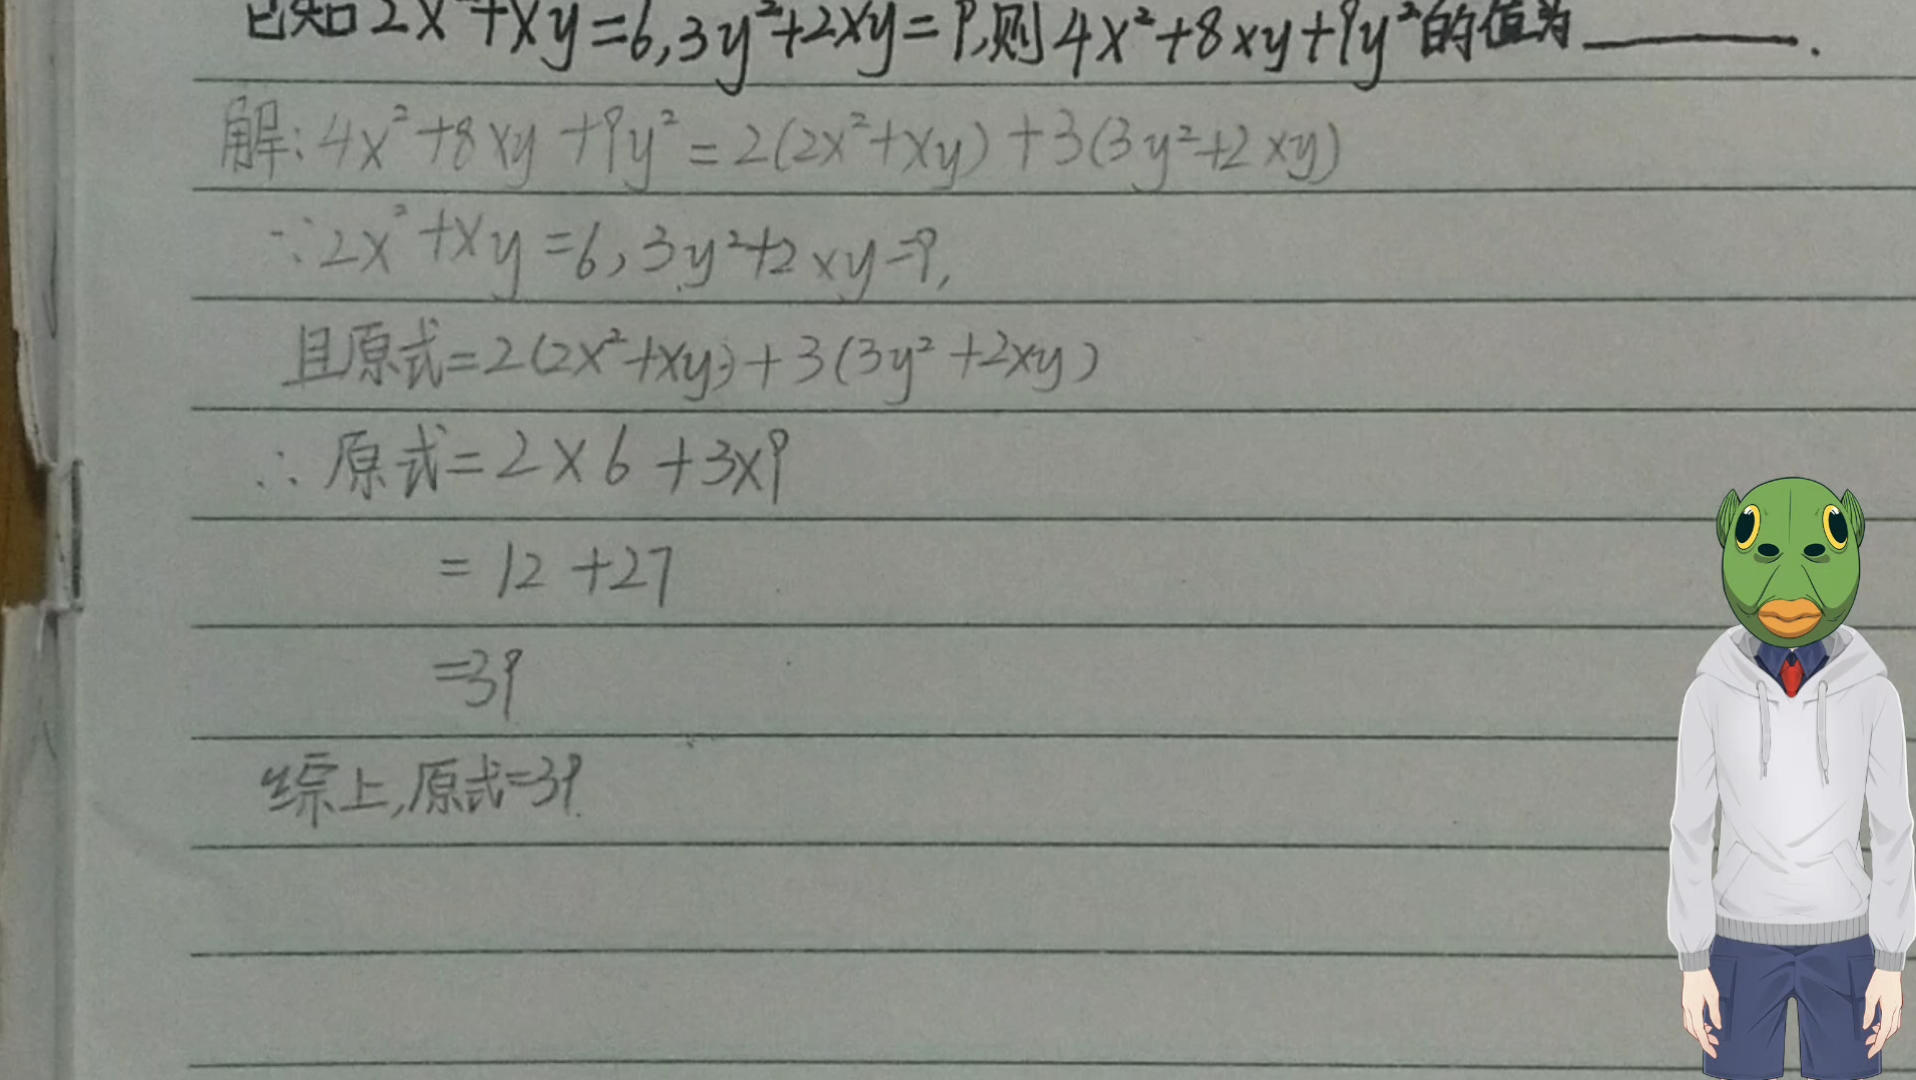 已知2x²+xy=6,3y²+2xy=9,则4x²+8xy+9y²的值为______.
解:4x²+8xy+9y²=2(2x²+xy)+3(3y²+2xy)
∵2x²+xy=6,3y²+2xy=9,
且原式=2(2x²+xy)+3(3y²+2xy)
∴原式=2×6+3×9
=12+27
=39
综上,原式=39.